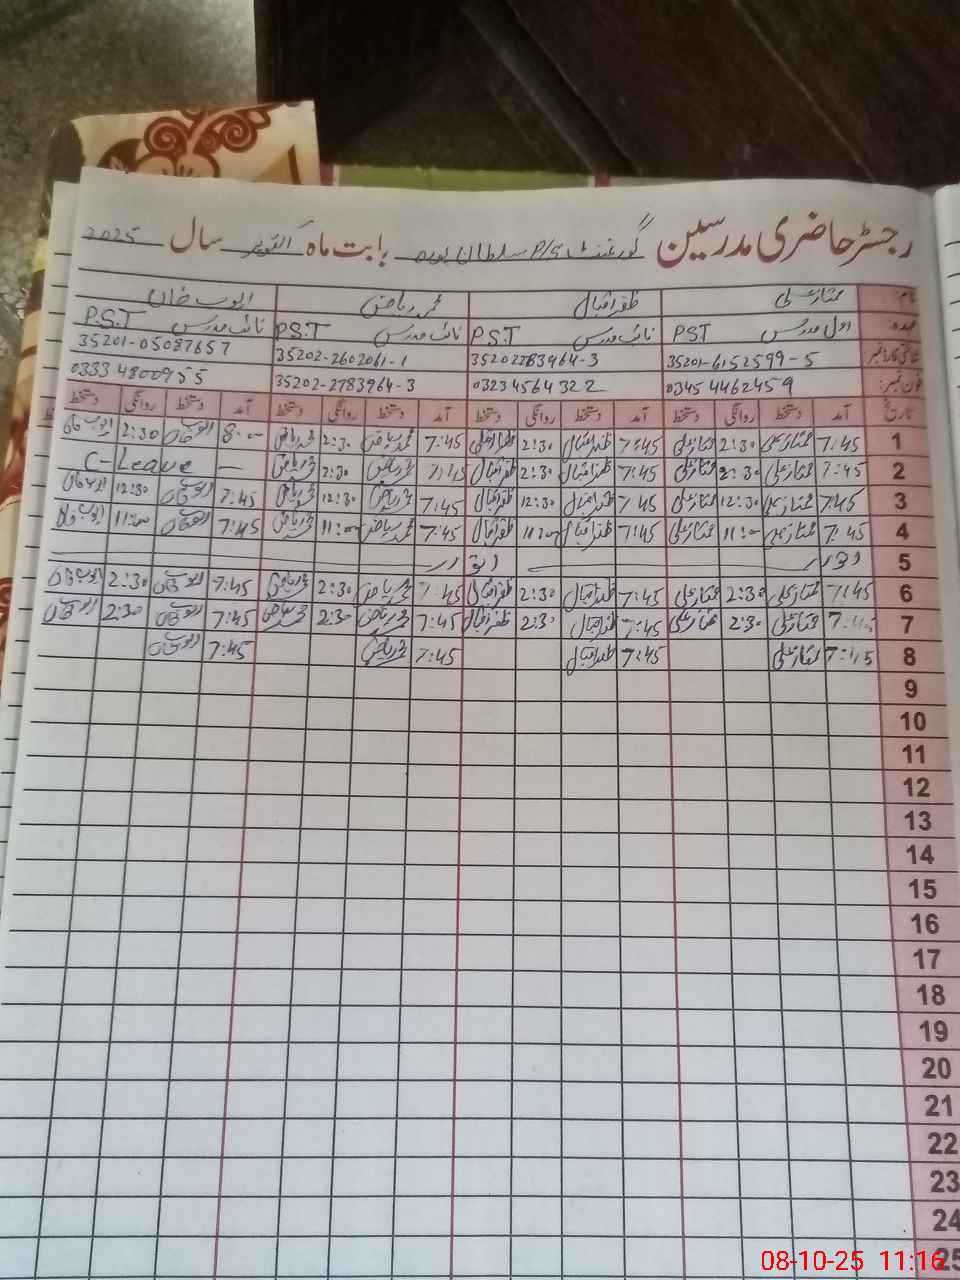 رجسٹر حاضری مدرسین گورنمنٹ P/S سلطان پورہ بابت ماہ اکتوبر سال 2025
نام ممتاز علی ظفر اقبال محمد ریاض ایوب خان
عہدہ: اول مدرس PST نائب مدرس P.S.T نائب مدرس P.S.T نائب مدرس P.S.T
شناختی کارڈ نمبر 35201-6152599-5 35202783964-3 35202-2602061-1 35201-05087657
فون نمبر: 0345 4462459 0323 4564322 35202-2783964-3 0333 4800955
تاریخ آمد دستخط روانگی دستخط آمد دستخط روانگی دستخط آمد دستخط روانگی دستخط آمد دستخط روانگی دستخط
1 7:45 ممتاز علی 2:30 ممتاز علی 7:45 ظفر اقبال 2:30 ظفر اقبال 7:45 محمد ریاض 2:30 محمد ریاض 8:00 ایوب خان 2:30 ایوب خان
2 7:45 ممتاز علی 2:30 ممتاز علی 7:45 ظفر اقبال 2:30 ظفر اقبال 7:45 محمد ریاض 2:30 محمد ریاض — C-Leave
3 7:45 ممتاز علی 12:30 ممتاز علی 7:45 ظفر اقبال 12:30 ظفر اقبال 7:45 محمد ریاض 12:30 محمد ریاض 7:45 ایوب خان 12:30 ایوب خان
4 7:45 ممتاز علی 11:00 ممتاز علی 7:45 ظفر اقبال 11:00 ظفر اقبال 7:45 محمد ریاض 11:00 محمد ریاض 7:45 ایوب خان 11:00 ایوب خان
5 اتوار اتوار
6 7:45 ممتاز علی 2:30 ممتاز علی 7:45 ظفر اقبال 2:30 ظفر اقبال 7:45 محمد ریاض 2:30 محمد ریاض 7:45 ایوب خان 2:30 ایوب خان
7 7:45 ممتاز علی 2:30 ممتاز علی 7:45 ظفر اقبال 2:30 ظفر اقبال 7:45 محمد ریاض 2:30 محمد ریاض 7:45 ایوب خان 2:30 ایوب خان
8 7:45 ممتاز علی 7:45 ظفر اقبال 7:45 محمد ریاض 7:45 ایوب خان
9
10
11
12
13
14
15
16
17
18
19
20
21
22
23
24
25
08-10-25 11:16